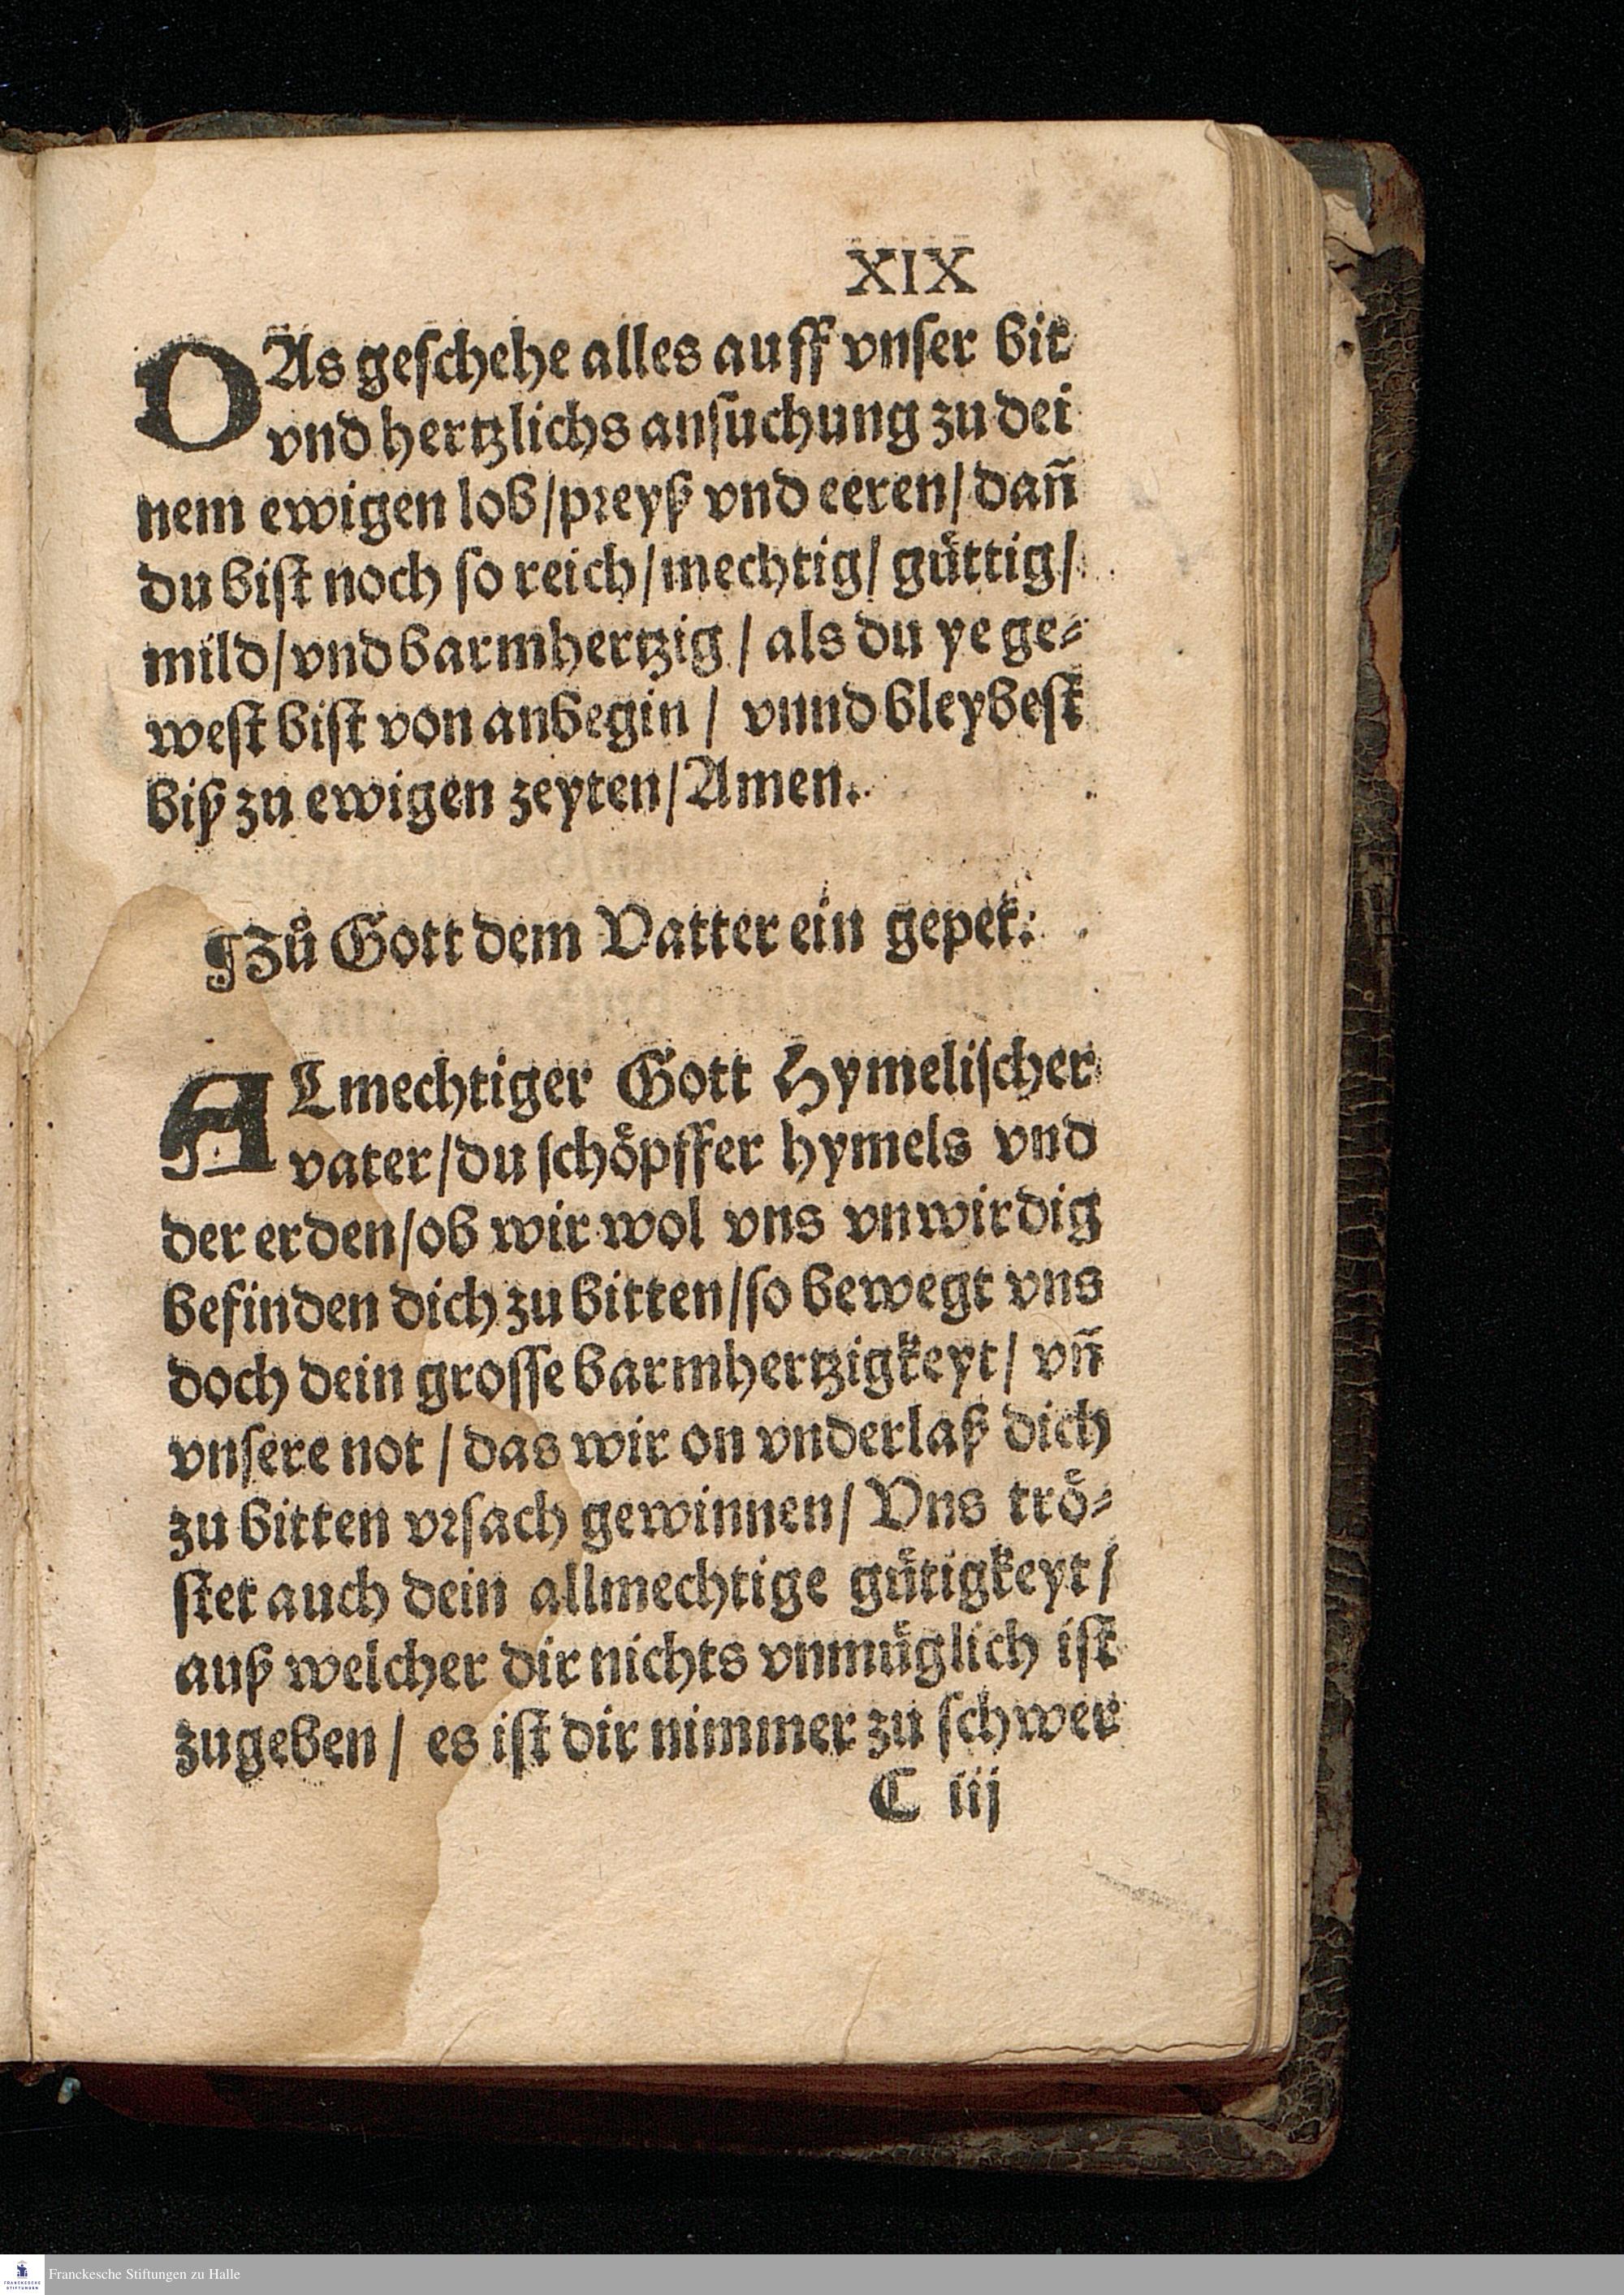 XIX
DAs geschehe alles auff vnser bit
vnd hertzlichs ansuchung zu dei
nem ewigen lob/preyß vnd eeren/dañ
du bist noch so reich/mechtig/ guͤttig/
mild/vnd barmhertzig / als du ye ge⸗
west bist von anbegin / vnnd bleybest
biß zu ewigen zeyten/Amen.
¶Zů Gott dem Vatter ein gepet.
ALmechtiger Gott Hymelischer
vater/du schoͤpffer hymels vnd
der erden/ob wir wol vns vnwirdig
befinden dich zu bitten/so bewegt vns
doch dein grosse barmhertzigkeyt/ vñ
vnsere not / das wir on vnderlaß dich
zu bitten vrsach gewinnen/ Vns troͤ⸗
stet auch dein allmechtige guͤtigkeyt/
auß welcher dir nichts vnmuͤglich ist
zugeben/ es ist dir nimmer zu schwer
C iij
Franckesche Stiftungen zu Halle
FRANCKESCHE
STIFTUNGEN